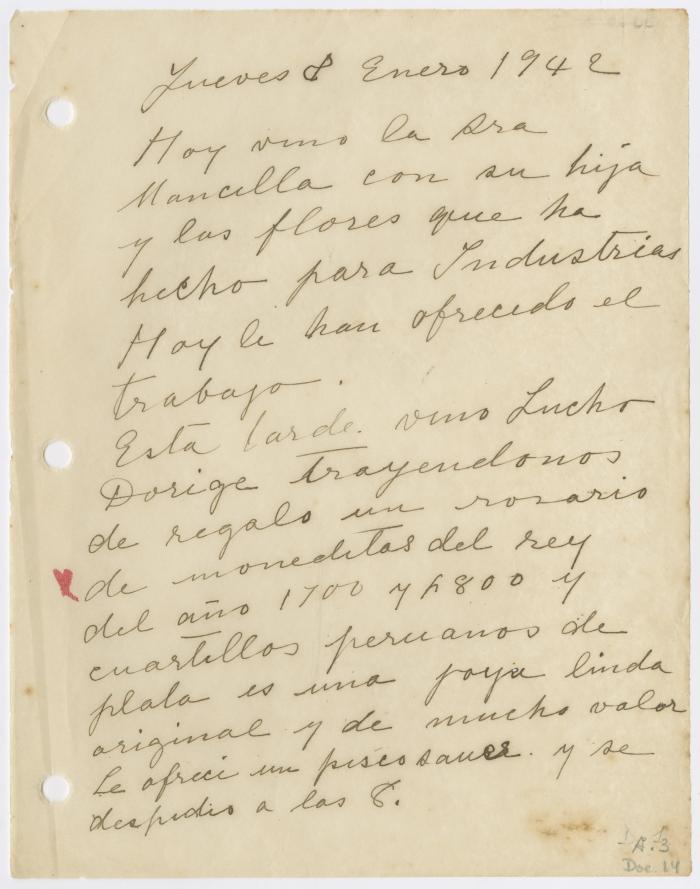 Jueves 8 Enero 1942
Hoy vino la Sra
Mancilla con su hija
y las flores que ha
hecho para Industrias
Hoy le han ofrecido el
trabajo.
Esta tarde vino Lucho
Dorige trayendonos
de regalo un rosario
de moneditas del rey
del año 1700 y 1800 y
cuartillos peruanos de
plata es una joya linda
original y de mucho valor
Le ofreci un pisco sauer. y se
despidio a las 8.
A.3
Doc. 14